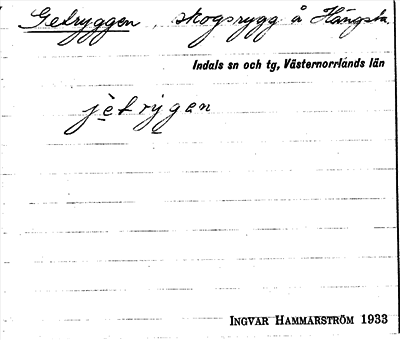 Getryggen, skogsrygg å Hängsta.
Indals sn och tg, Västernorrlands län
jètrýgen
INGVAR HAMMARSTRÖM 1933